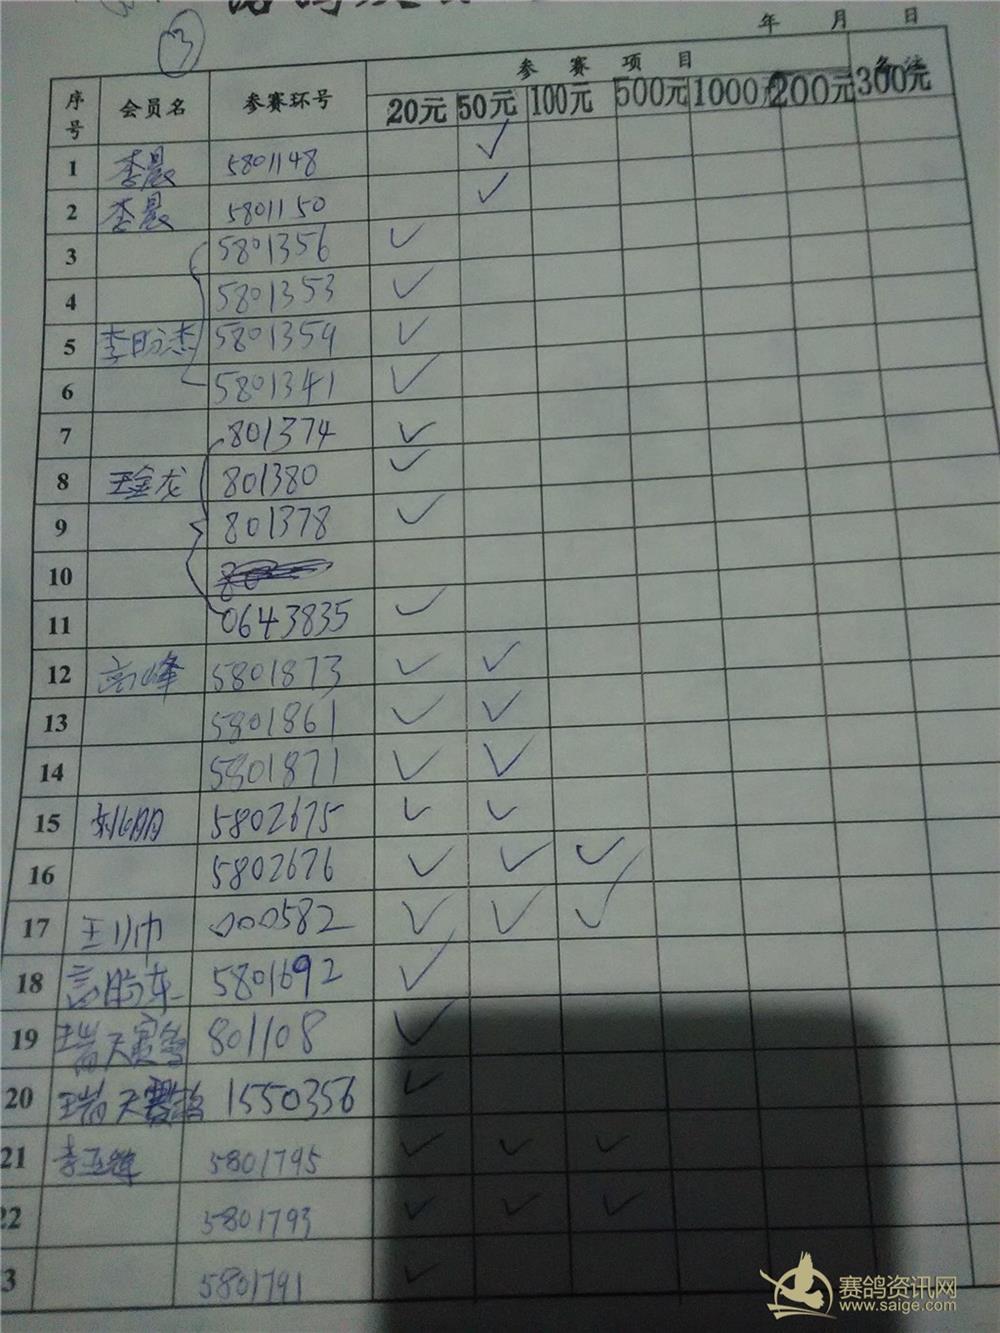 3
年 月 日
序号 会员名 参赛环号 参 赛 项 目 备注
20元 50元 100元 500元 1000元 200元 300元
1 李晨 5801148 ✓
2 李晨 5801150 ✓
3 5801356 ✓
4 5801353 ✓
5 5801359 ✓
6 5801341 ✓
7 801374 ✓
8 王金龙 801380 ✓
9 801378 ✓
10
11 0643835 ✓
12 高峰 5801873 ✓ ✓
13 5801861 ✓ ✓
14 5801871 ✓ ✓
15 5802675 ✓ ✓
16 5802676 ✓ ✓ ✓
17 000582 ✓ ✓ ✓
18 5801692 ✓
19 瑞天赛鸽 801108 ✓
20 瑞天赛鸽 1550356 ✓
21 5801795 ✓ ✓ ✓
22 5801793 ✓ ✓ ✓
3 5801791 ✓
赛鸽资讯网
www.saige.com